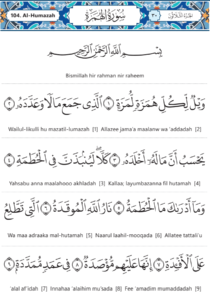 104. Al-Humazah
سُورَةُ الهُمَزَةِ
٣٠
بِسْمِ اللَّهِ الرَّحْمَٰنِ الرَّحِيمِ
Bismillah hir rahman nir raheem
وَيْلٌ لِّكُلِّ هُمَزَةٍ لُّمَزَةٍ ۝١ الَّذِي جَمَعَ مَالًا وَعَدَّدَهُ ۝٢
Wailul-likulli hu mazatil-lumazah [1] Allazee jama'a maalanw wa 'addadah [2]
يَحْسَبُ أَنَّ مَالَهُ أَخْلَدَهُ ۝٣ كَلَّا لَيُنبَذَنَّ فِي الْحُطَمَةِ ۝٤
Yahsabu anna maalahooo akhladah [3] Kallaa; layumbazanna fil hutamah [4]
وَمَا أَدْرَاكَ مَا الْحُطَمَةُ ۝٥ نَارُ اللَّهِ الْمُوقَدَةُ ۝٦ الَّتِي تَطَّلِعُ
Wa maa adraaka mal-hutamah [5] Naarul laahil-mooqada [6] Allatee tattali'u
عَلَى الْأَفْئِدَةِ ۝٧ إِنَّهَا عَلَيْهِم مُّؤْصَدَةٌ ۝٨ فِي عَمَدٍ مُّمَدَّدَةٍ ۝٩
'alal af'idah [7] Innahaa 'alaihim mu'sada [8] Fee 'amadim mumaddadah [9]